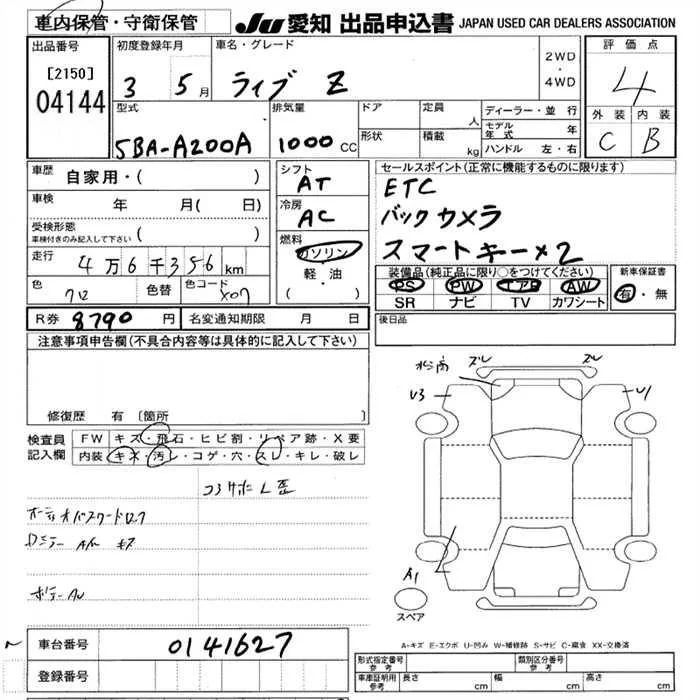 車内保管・守衛保管
JU 愛知 出品申込書 JAPAN USED CAR DEALERS ASSOCIATION
出品番号
[2150]
04144
初度登録年月
3 5 月
車名・グレード
ライブ Z
2WD
・
4WD
評価点
4
外装 内装
C B
型式
5BA-A200A
排気量
1000 CC
ドア
形状
定員 人
積載 kg
ディーラー・並行
モデル年式 年
ハンドル 左・右
車歴 自家用・( )
車検 年 月( 日)
受検形態
車検付きのみ記入して下さい ( )
走行 4万6千356km
色 クロ 色替 色コード X07
シフト
AT
冷房
AC
燃料
ガソリン
軽・油
( ・ )
セールスポイント(正常に機能するものに限ります)
ETC
バックカメラ
スマートキー×2
装備品(純正品に限り○をつけてください)
PS PW エアB AW
SR ナビ TV カワシート
新車保証書
有・無
R券 8790 円 名変通知期限 月 日
後日品
注意事項申告欄(不具合内容等は具体的に記入して下さい)
修復歴 有 [箇所
検査員記入欄
FW キズ・飛石・ヒビ割・リペア跡・X要
内装 キズ・汚レ・コゲ・穴・スレ・キレ・破レ
ズレ ズレ
U3 U1
A1
スペア
A-キズ E-エクボ U-凹み W-補修跡 S-サビ C-腐食 XX-交換済
車台番号 0141627
登録番号
形式指定番号 参考
類別区分番号 参考
車庫証明用 参考 長さ cm 幅 cm 高さ cm